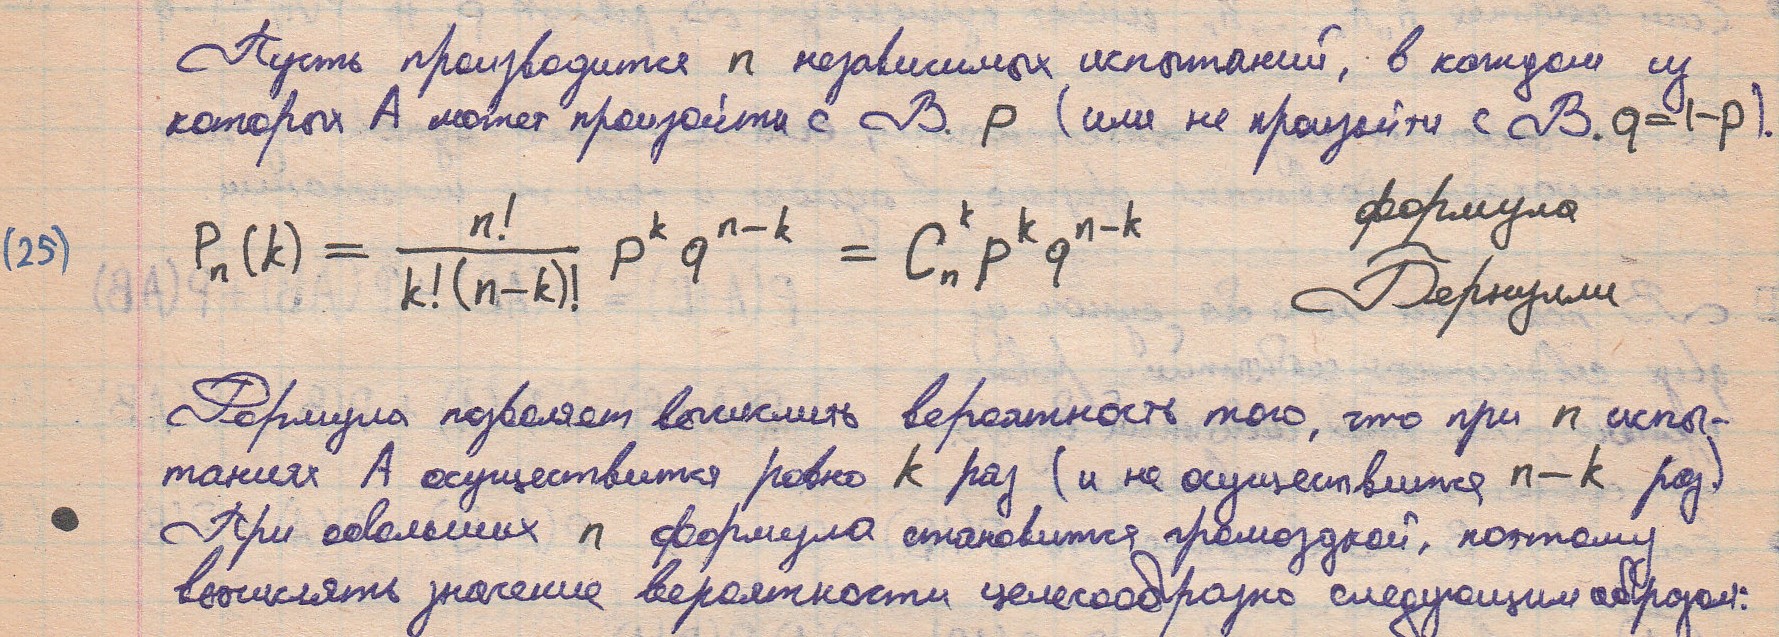 Пусть производится n независимых испытаний, в каждом из
которых A может произойти с В. p (или не произойти с В. q=1-p).
(25) Pn(k) = n! / k!(n-k)! p^k q^n-k = C_n^k p^k q^n-k формула
Бернулли
Формула позволяет вычислить вероятность того, что при n испы-
таниях A осуществится ровно k раз (и не осуществится n-k раз)
• При больших n формула становится громоздкой, поэтому
вычислять значение вероятности целесообразно следующим образом: